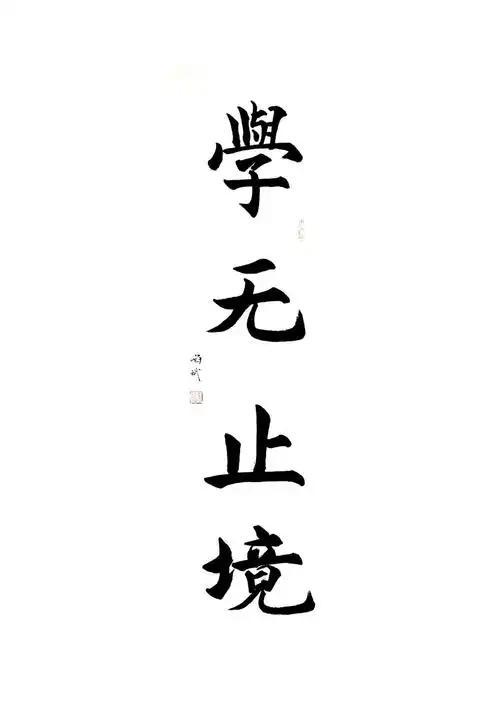 學无止境